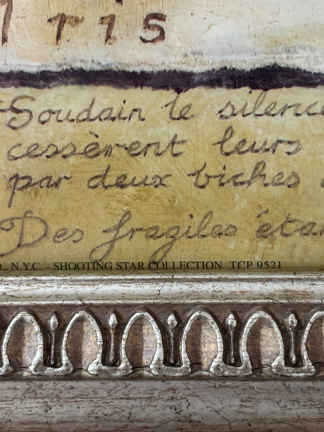 ris
Soudain le silence
cessèrent leurs
par deux biches
Des fragiles étan
N.Y.C. - SHOOTING STAR COLLECTION TCP 9521